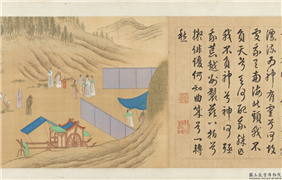 漂流為神有靈兮何故
處我天南海北頭我不
負天兮天何配我殊匹
我不負神兮神何殛
我越荒州製茲八拍兮
擬俳優何知曲成兮轉
愁
國立故宮博物院